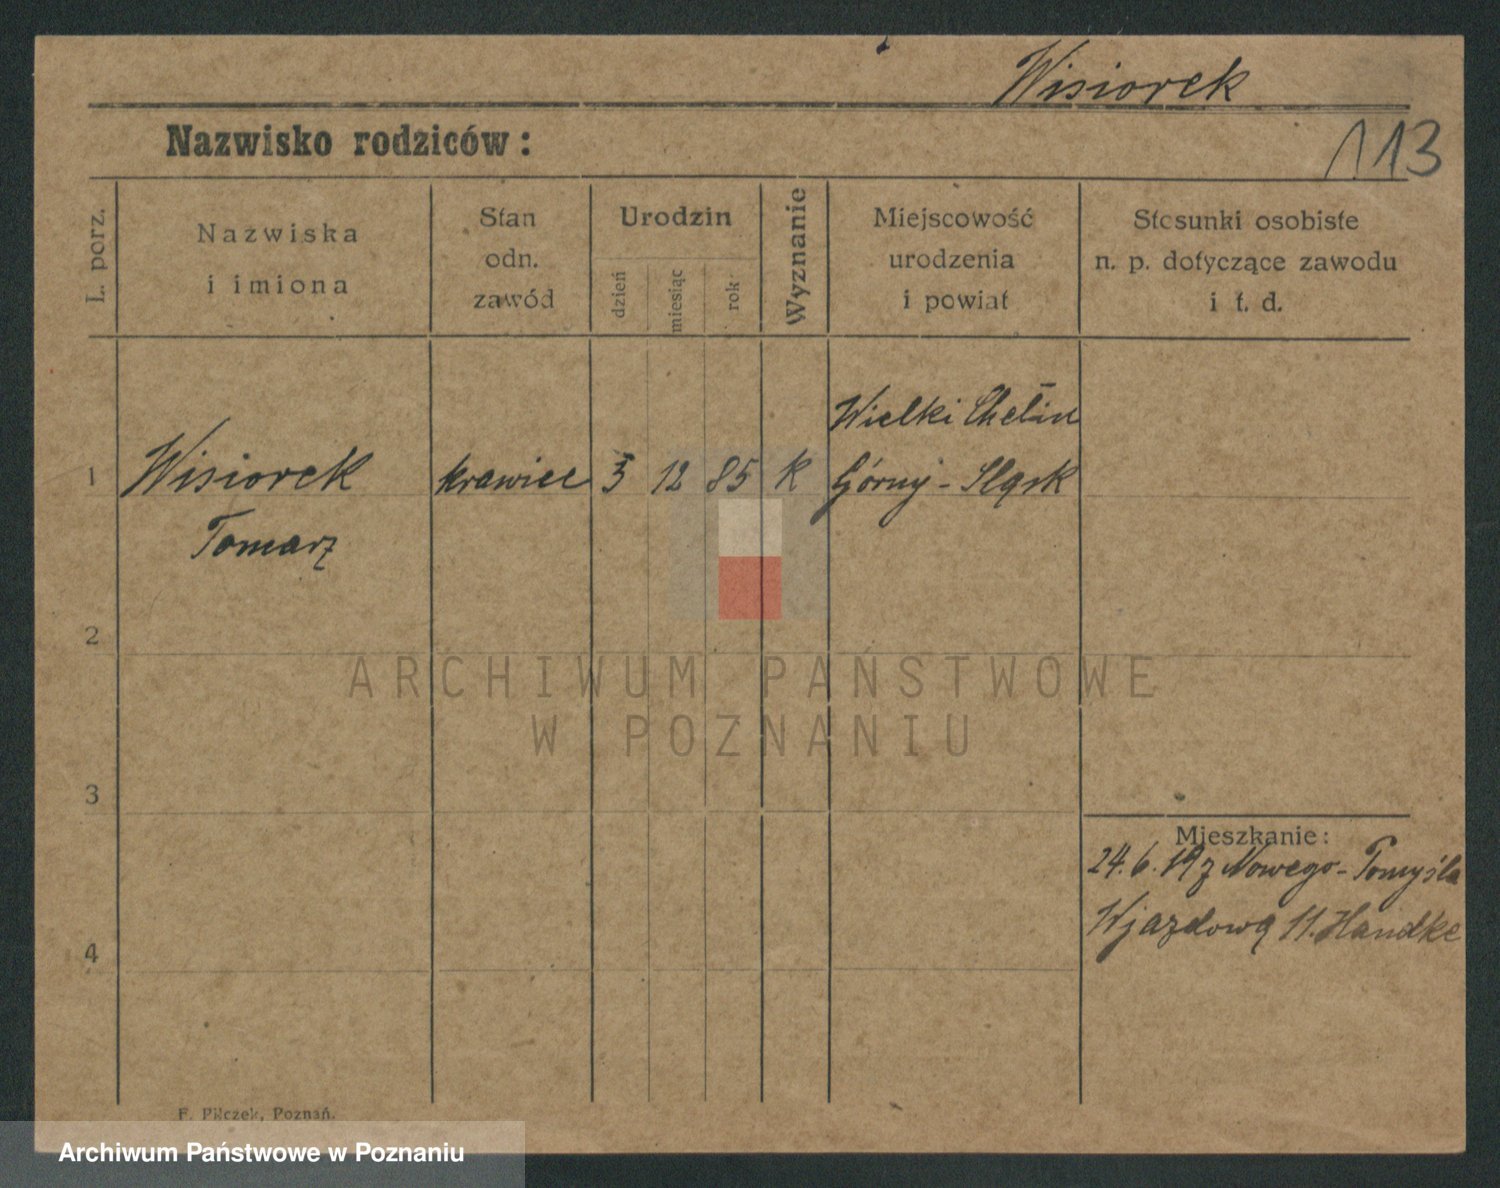 Wisiorek
113
Nazwisko rodziców:
L. porz.
Nazwiska
i imiona
Stan
odn.
zawód
Urodzin
dzień
miesiąc
rok
Wyznanie
Miejscowość
urodzenia
i powiat
Stosunki osobiste
n. p. dotyczące zawodu
i t. d.
Wielki Chełm
1 Wisiorek krawiec 3 12 85 k Górny-Sląsk
Tomasz
2
3
4
Mieszkanie:
24.6.19 z Nowego-Tomyśla
Wjazdowa 11. Handke
F. Pilczek, Poznań.
ARCHIWUM PAŃSTWOWE
W POZNANIU
Archiwum Państwowe w Poznaniu